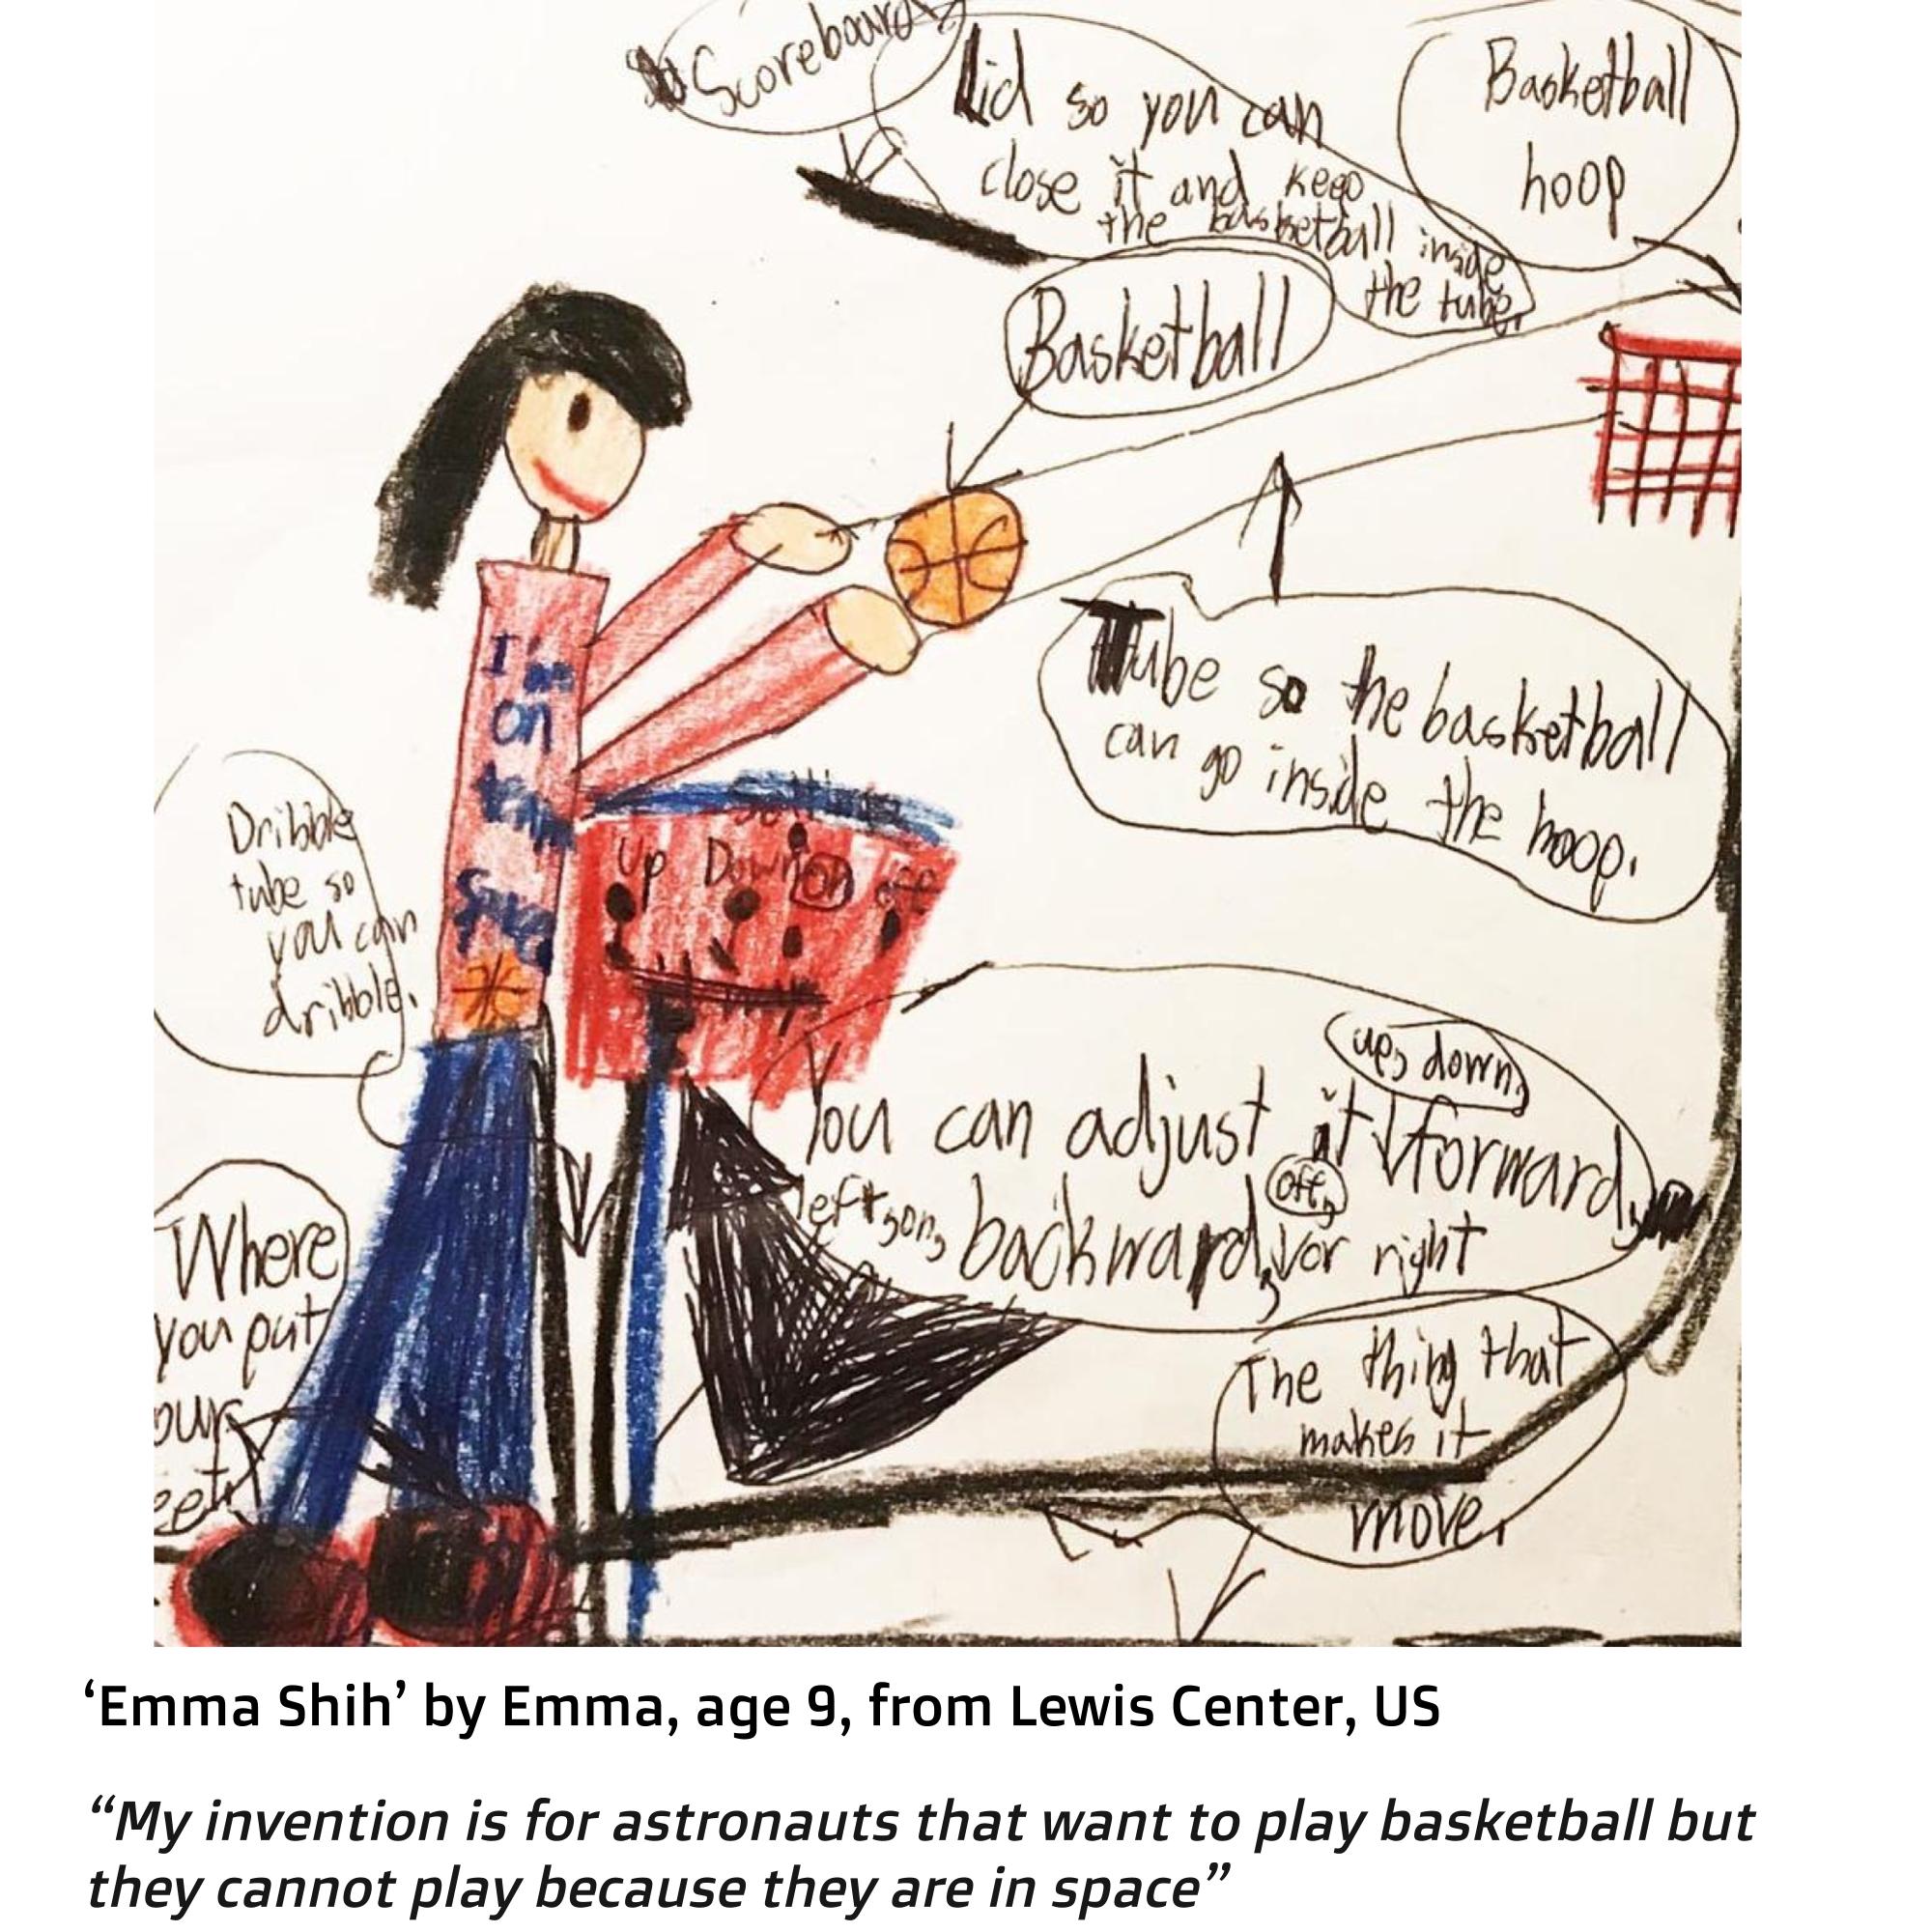 Scoreboard
Lid so you can
close it and keep
the basketball inside
the tube.
Basketball
hoop
Basketball
I'm
on
Tube so the basketball
can go inside the hoop.
Dribble
tube so
you can
dribble.
Settings
Up Down on off
You can adjust it
up, down,
forward,
left, on, backward,
off,
or right
Where
you put
our
eet
The thing that
makes it
move.
‘Emma Shih’ by Emma, age 9, from Lewis Center, US
“My invention is for astronauts that want to play basketball but
they cannot play because they are in space”